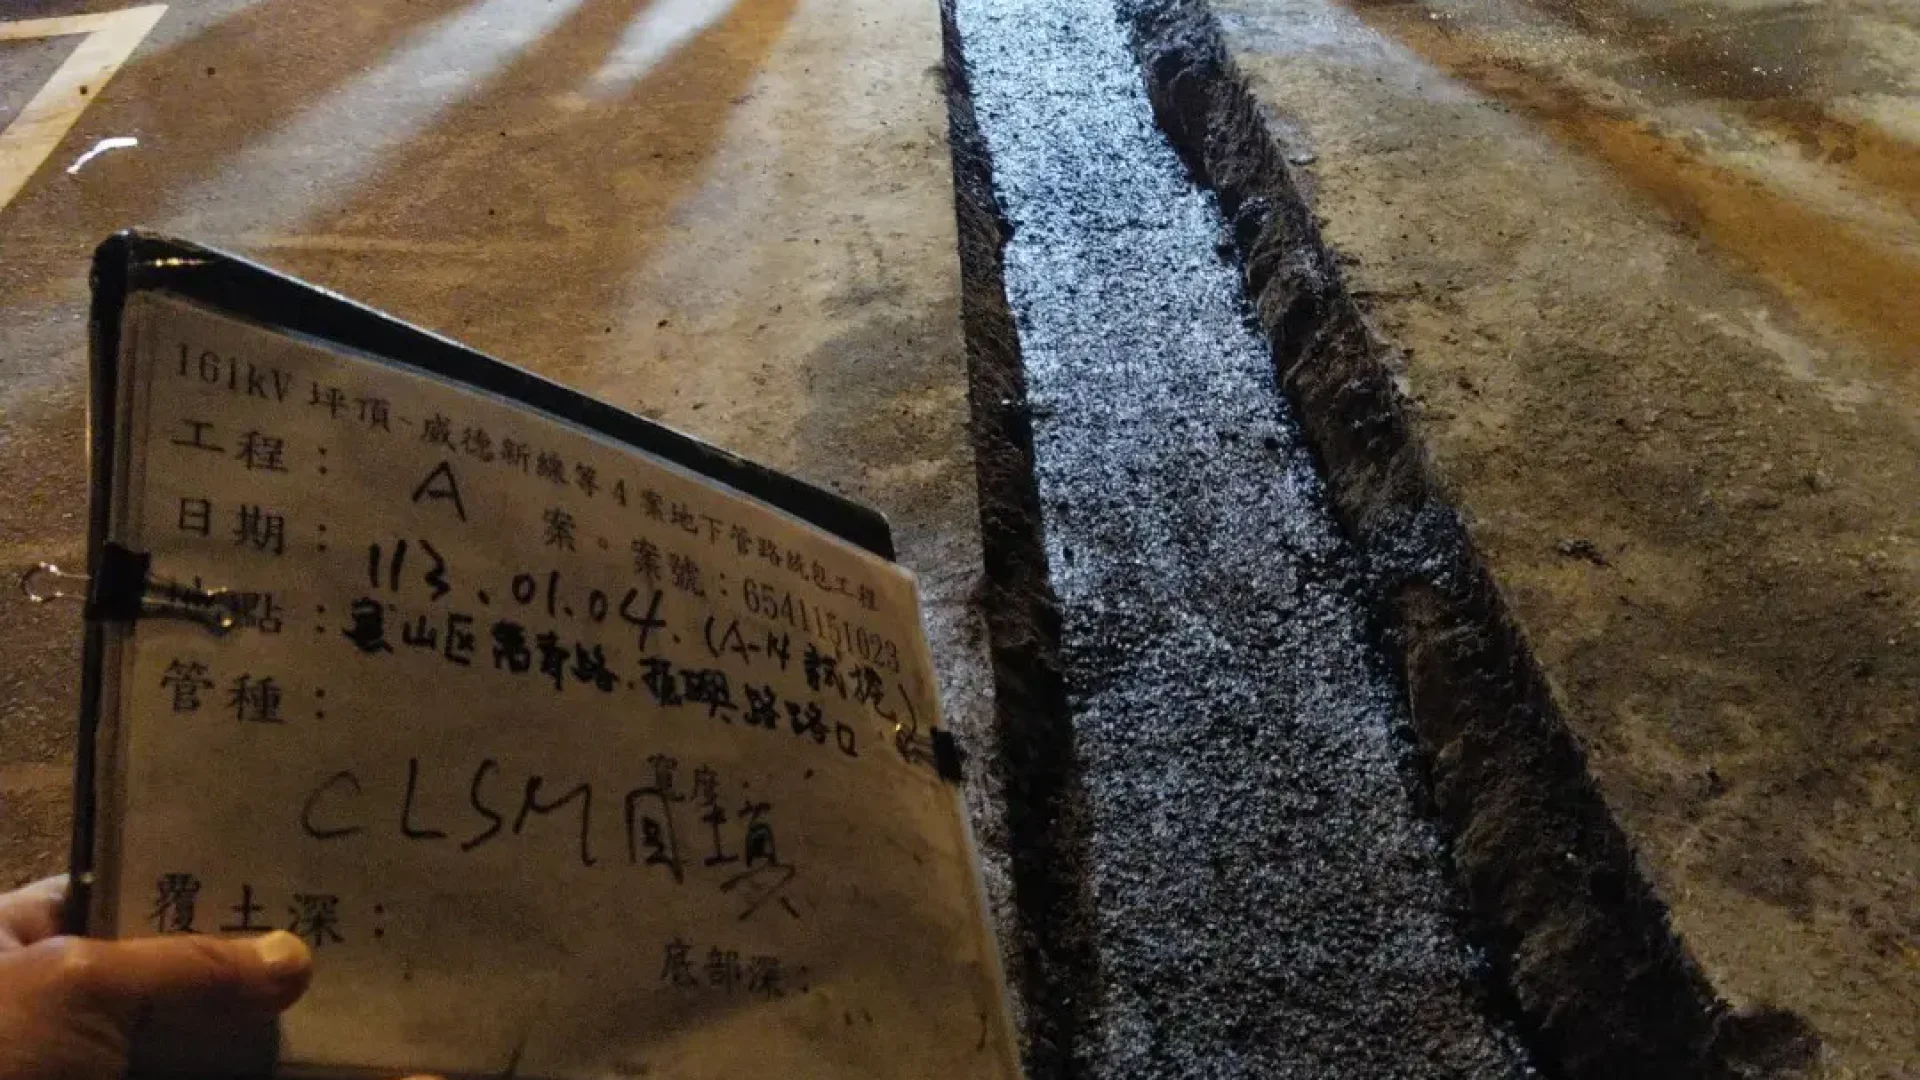 161kV 坪頂~威德新線等4案地下管路統包工程
工程： A 案。案號：6541151023
日期： 113.01.04. (A-14 試挖)
地點：龜山區萬壽路.振興路路口
管種： 寬度：
CLSM 回填
覆土深： 底部深：